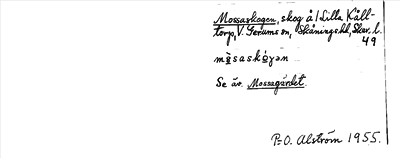 Mossaskogen, skog å 1 Lilla Kåll-
torp, V. Gerums sn, Skånings hd, Skar. l.
49
mɔ̀saskóγən
Se äv. Mossagärdet.
P-O. Alström 1955.